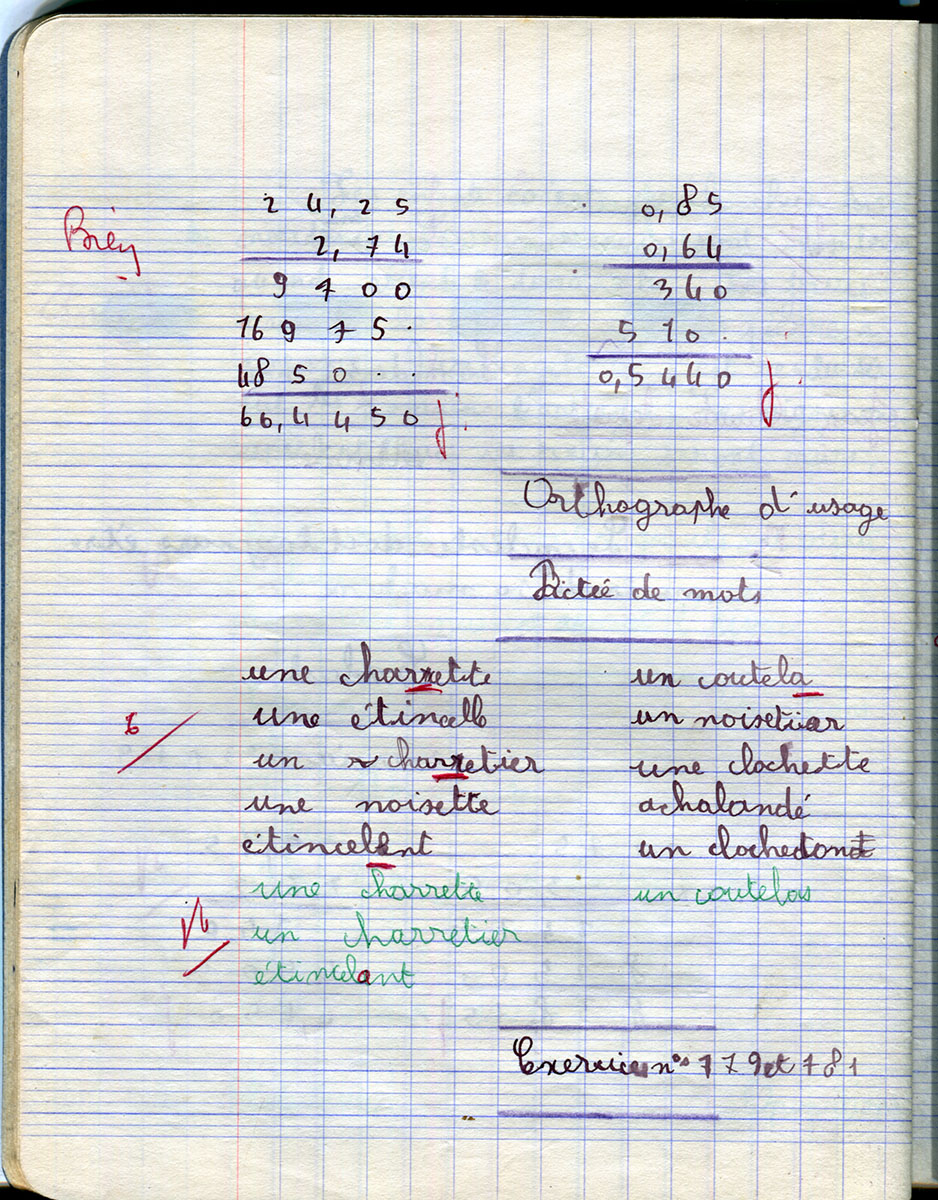 Bien
2 4, 2 5
2, 7 4
9 7 0 0
16 9 7 5 .
48 5 0 . .
66, 4 4 5 0 j.
0,85
0,64
3 4 0
5 1 0 .
0,5 4 4 0 j.
Orthographe d'usage
Dictée de mots
une charrette
une étincelle
un charretier
une noisette
étincellent
une charrette
un charretier
étincelant
un coutela
un noisetier
une clochette
achalandé
un clocheton
un coutelas
Exercices nos 779 et 781